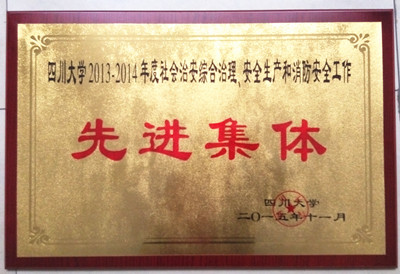 四川大学2013-2014年度社会治安综合治理、安全生产和消防安全工作
先进集体
四川大学
二〇一五年十一月